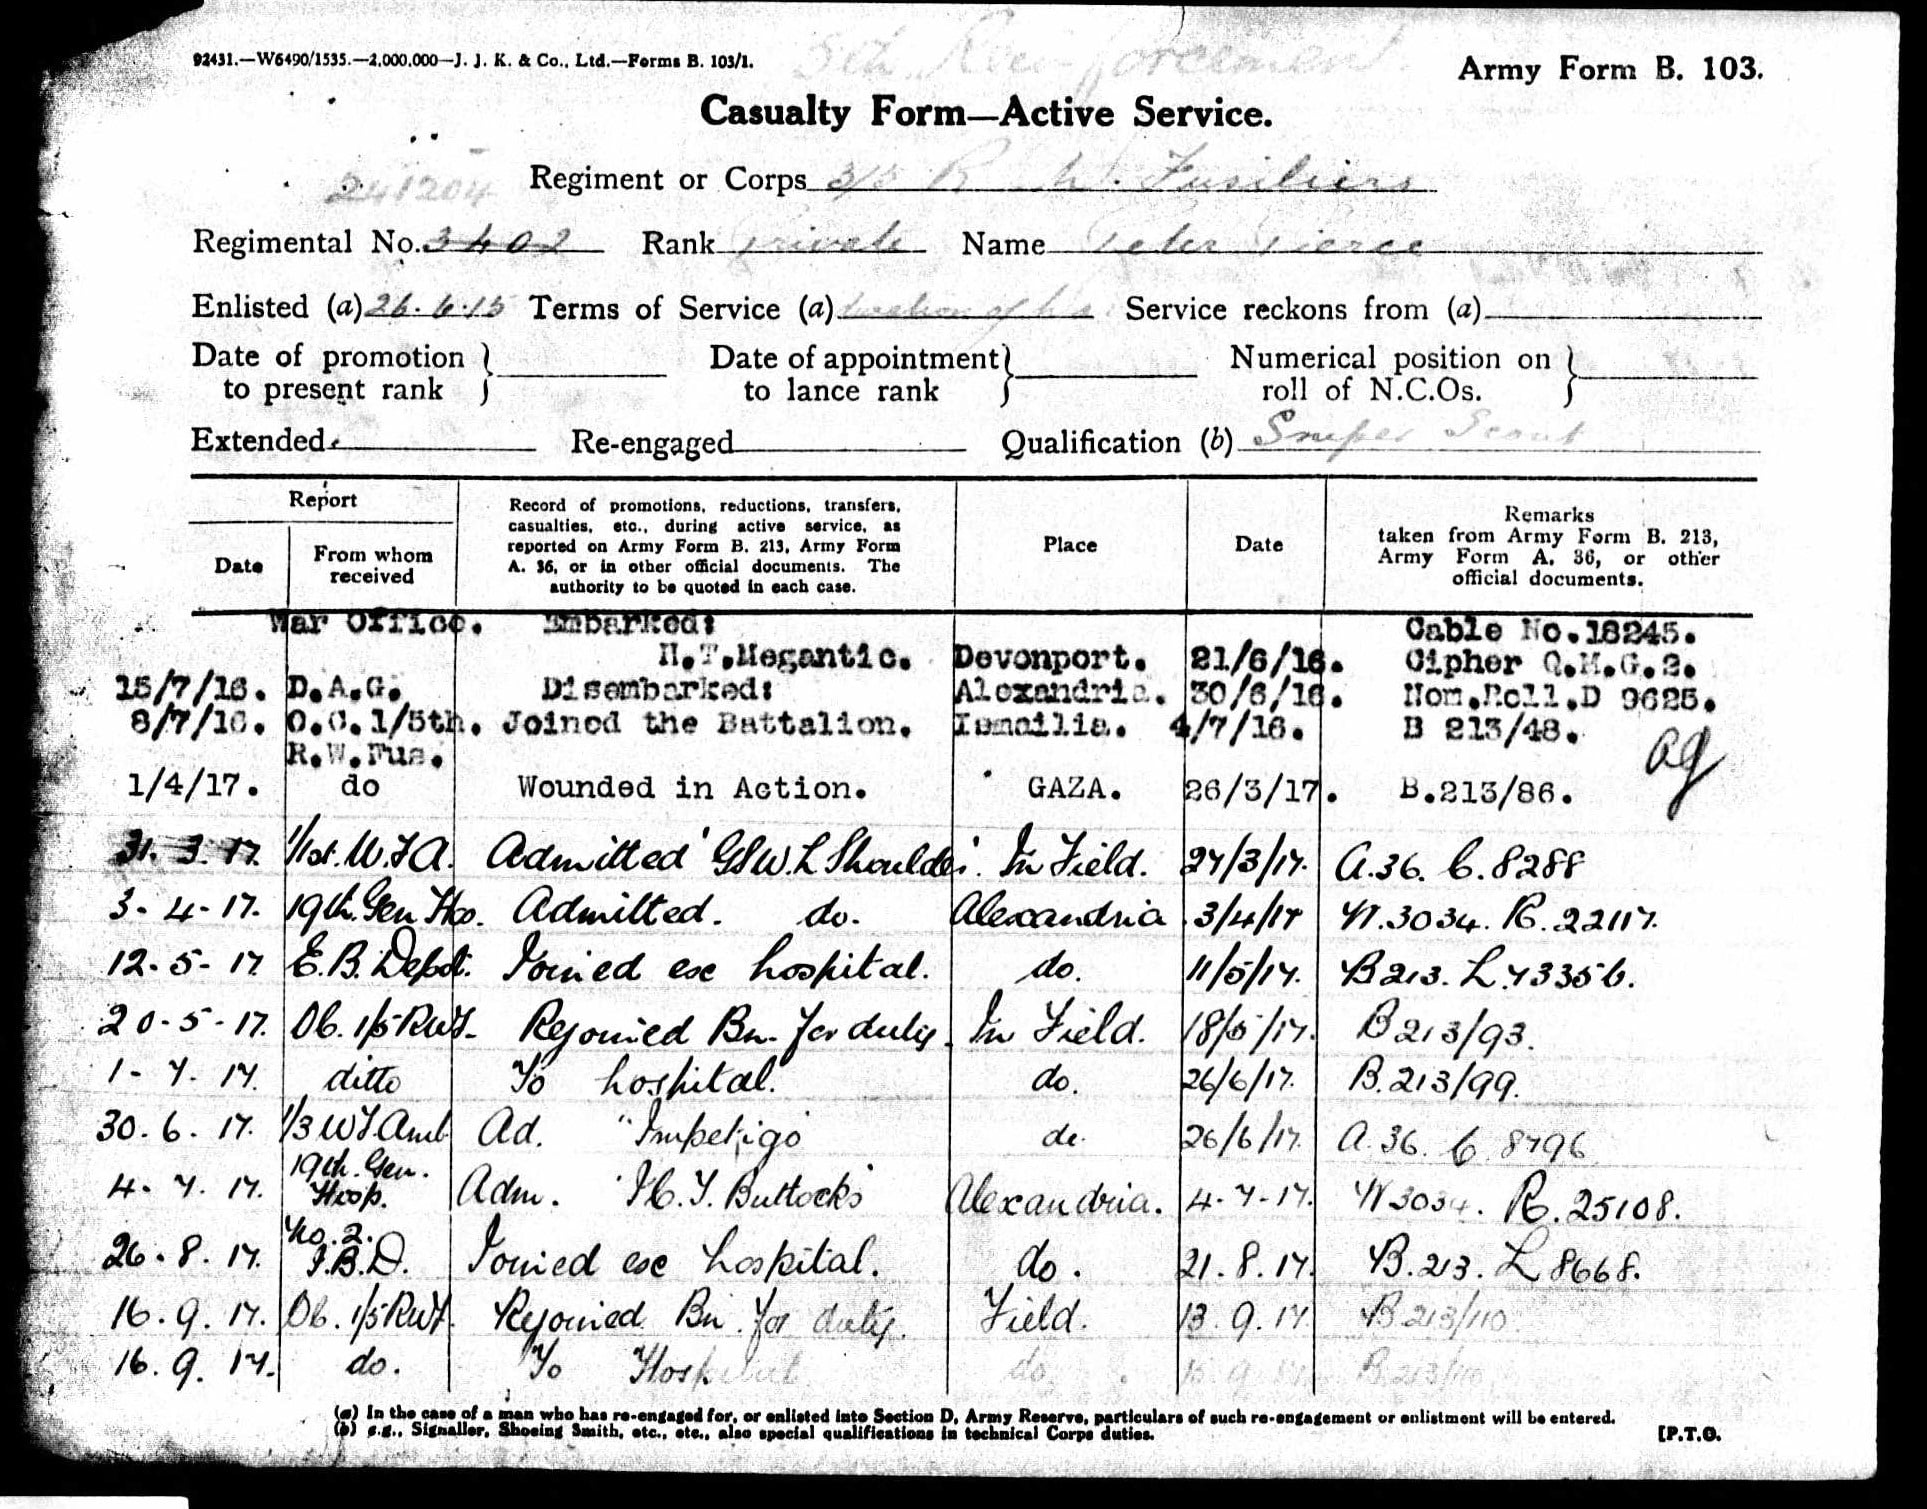 92431.—W6490/1535.—2,000,000—J. J. K. & Co., Ltd.—Forms B. 103/1.
Army Form B. 103.
Casualty Form—Active Service.
241204
Regiment or Corps 3/5 R. W. Fusiliers
Regimental No. 3402 Rank Private Name Peter Pierce
Enlisted (a) 26.6.15 Terms of Service (a) Service reckons from (a)
Date of promotion to present rank } Date of appointment to lance rank } Numerical position on roll of N.C.Os. }
Extended Re-engaged Qualification (b) Sniper Scout
Report
Date
From whom received
Record of promotions, reductions, transfers,
casualties, etc., during active service, as
reported on Army Form B. 213, Army Form
A. 36, or in other official documents. The
authority to be quoted in each case.
Place
Date
Remarks
taken from Army Form B. 213,
Army Form A. 36, or other
official documents.
War Office. Embarked: Cable No.18245.
H.T.Megantic. Devonport. 21/6/16. Cipher Q.M.G.2.
15/7/16. D.A.G. Disembarked: Alexandria. 30/6/16. Nom.Roll.D 9625.
8/7/16. O.C.1/5th. Joined the Battalion. Ismailia. 4/7/16. B 213/48.
R.W.Fus.
1/4/17. do Wounded in Action. GAZA. 26/3/17. B.213/86.
31.3.17. 1/1st. W.F.A. Admitted 'GSW. L Shoulder'. In Field. 27/3/17. A.36. C.8288
3-4-17. 19th. Gen Ho. Admitted. do. Alexandria 3/4/17 W.3034. R.22117.
12-5-17 E.B. Depot. Joined exe hospital. do. 11/5/17. B213. L.73356.
20-5-17. OC. 1/5 RWF. Rejoined Bn. for duty. In Field. 18/5/17. B213/93.
1-7-17. ditto To hospital. do. 26/6/17. B.213/99.
30.6.17. 1/3 W F. Amb Ad. "Impetigo do 26/6/17. A.36. C 8796
4-7.17. 19th. Gen. Hosp. Adm. 'I.C.T. Buttocks' Alexandria. 4-7-17. W3034. R.25108.
26.8.17. No.2. I.B.D. Joined exe hospital. do. 21.8.17. B.213. L 8668.
16.9.17. OC. 1/5 RWF. Rejoined Bn. for duty. Field. 13.9.17 B213/110
16.9.17. do. To Hospital do. 9 B.213/110
(a) In the case of a man who has re-engaged for, or enlisted into Section D, Army Reserve, particulars of such re-engagement or enlistment will be entered.
(b) e.g., Signaller, Shoeing Smith, etc., etc., also special qualifications in technical Corps duties.
[P.T.O.